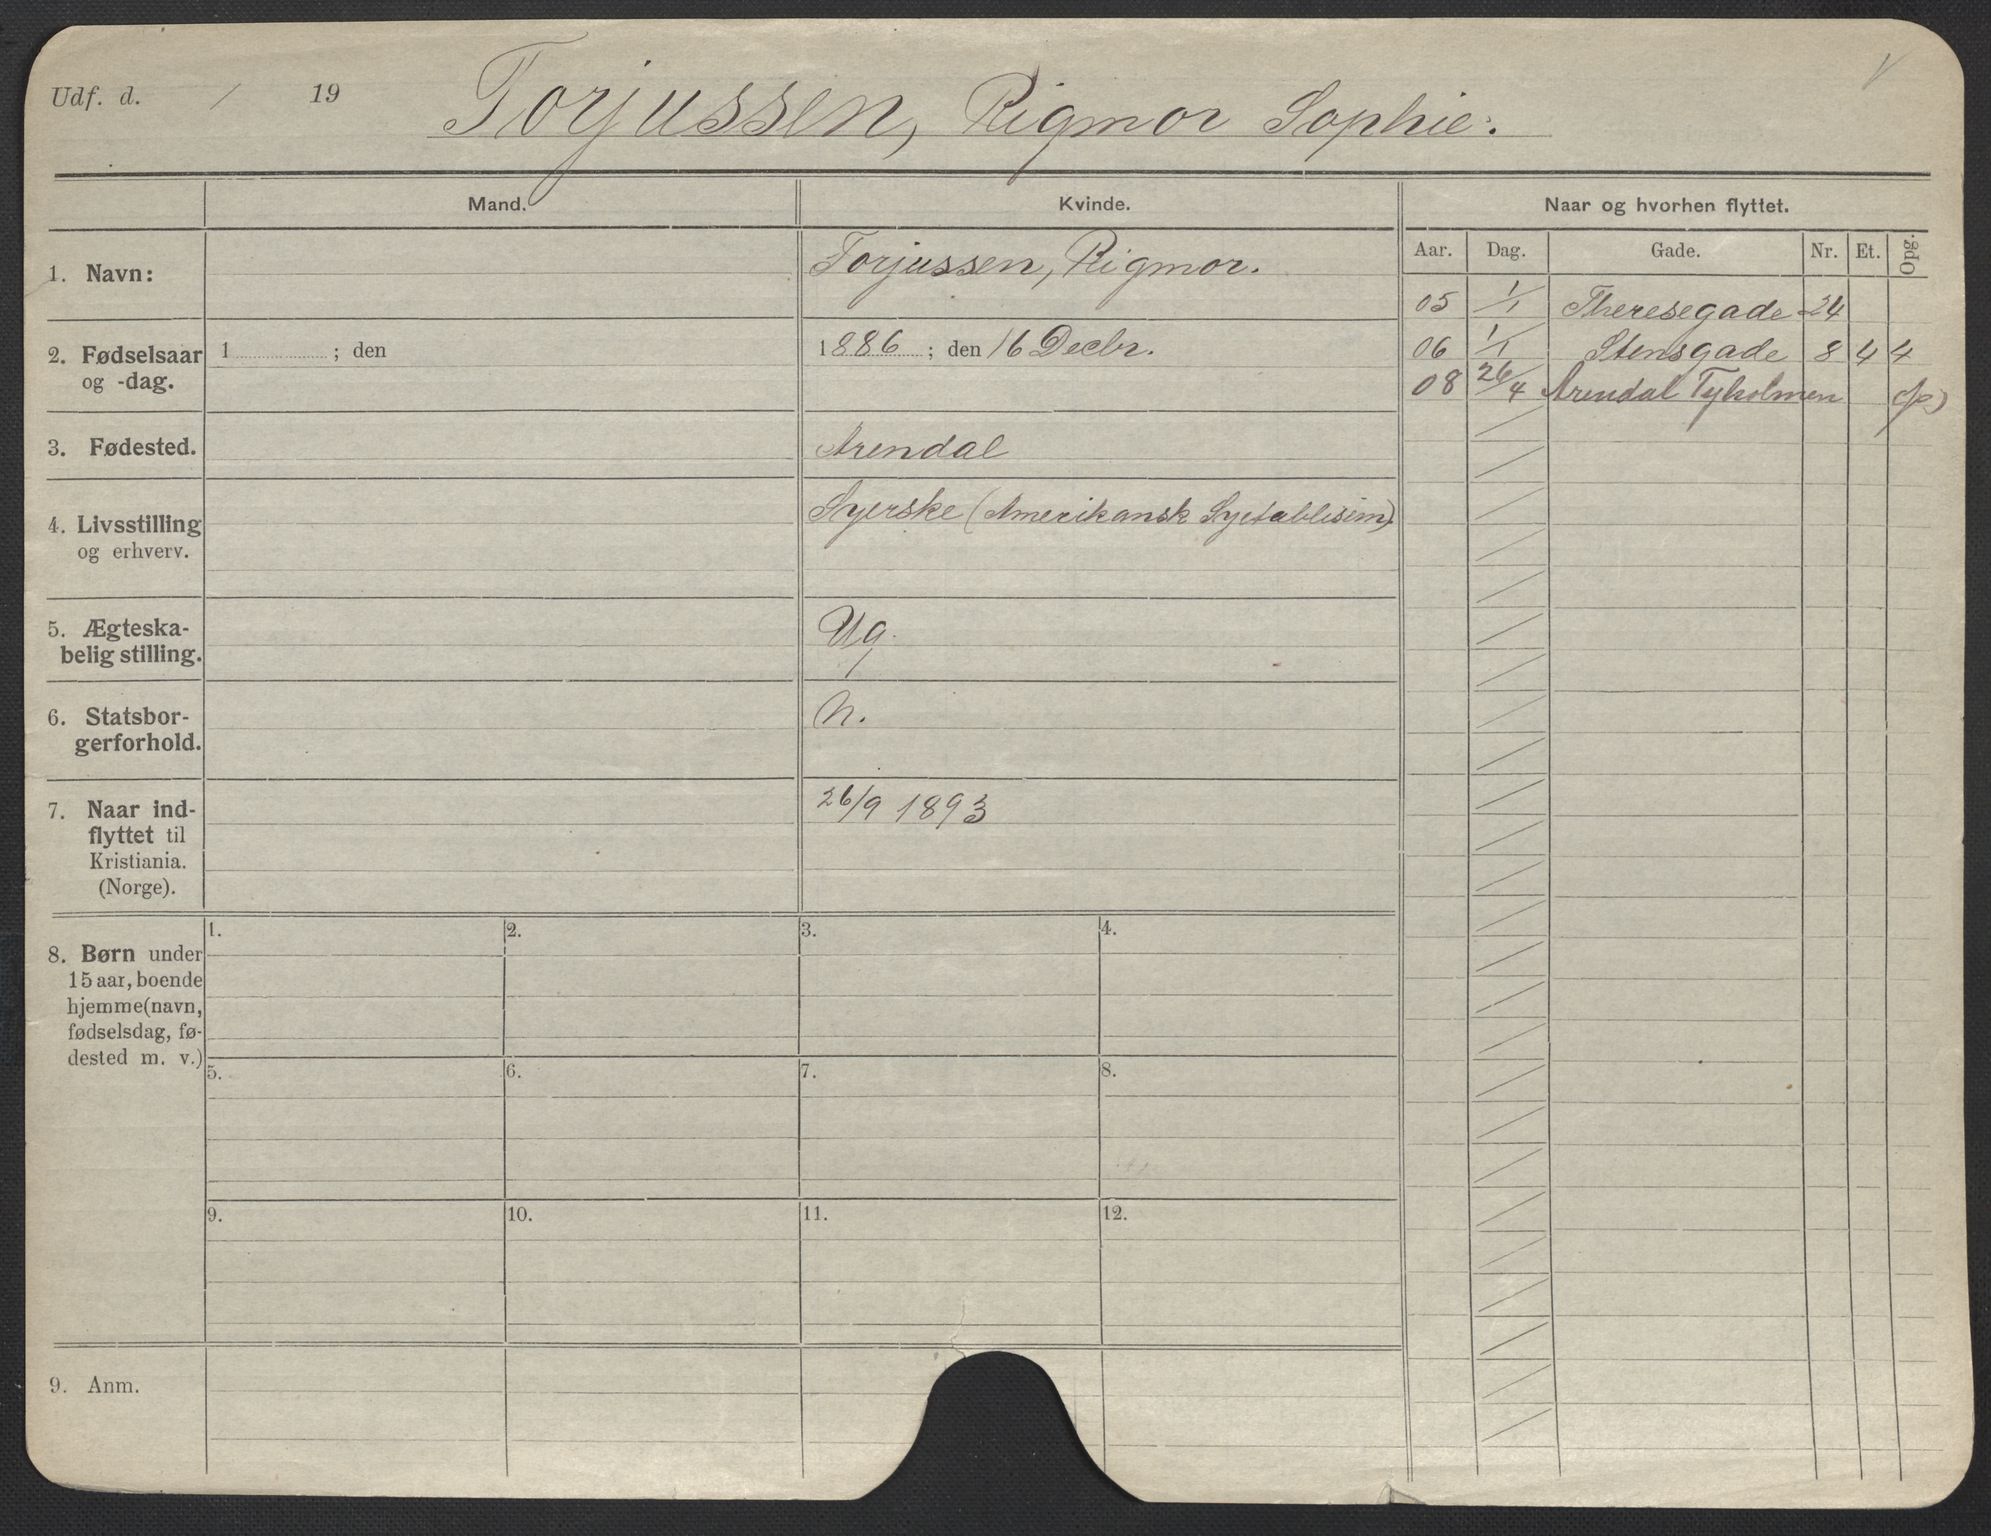 Udf. d. / 19 Torjussen, Rigmor Sophie.
Mand. Kvinde. Naar og hvorhen flyttet.
Aar. Dag. Gade. Nr. Et. Opg.
1. Navn: Torjussen, Rigmor.
05 1/1 Theresegade 24
2. Fødselsaar 1 ; den 1886 ; den 16 Decbr.
og -dag.
06 1/1 Stensgade 8 4 4
08 26/4 Arendal Tyholmen
3. Fødested. Arendal
4. Livsstilling Syerske (Amerikansk Syetablisem)
og erhverv.
5. Ægteska-
belig stilling. Ug.
6. Statsbor- N.
gerforhold.
7. Naar ind- 26/9 1893
flyttet til
Kristiania.
(Norge).
8. Børn under
15 aar, boende
hjemme (navn,
fødselsdag, fø-
dested m. v.)
1. 2. 3. 4.
5. 6. 7. 8.
9. 10. 11. 12.
9. Anm.